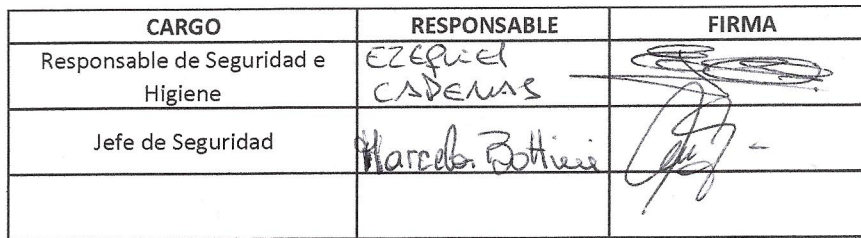 CARGO RESPONSABLE FIRMA
Responsable de Seguridad e
Higiene
EZEQUIEL
CADENAS
Jefe de Seguridad
Marcelo Bottini